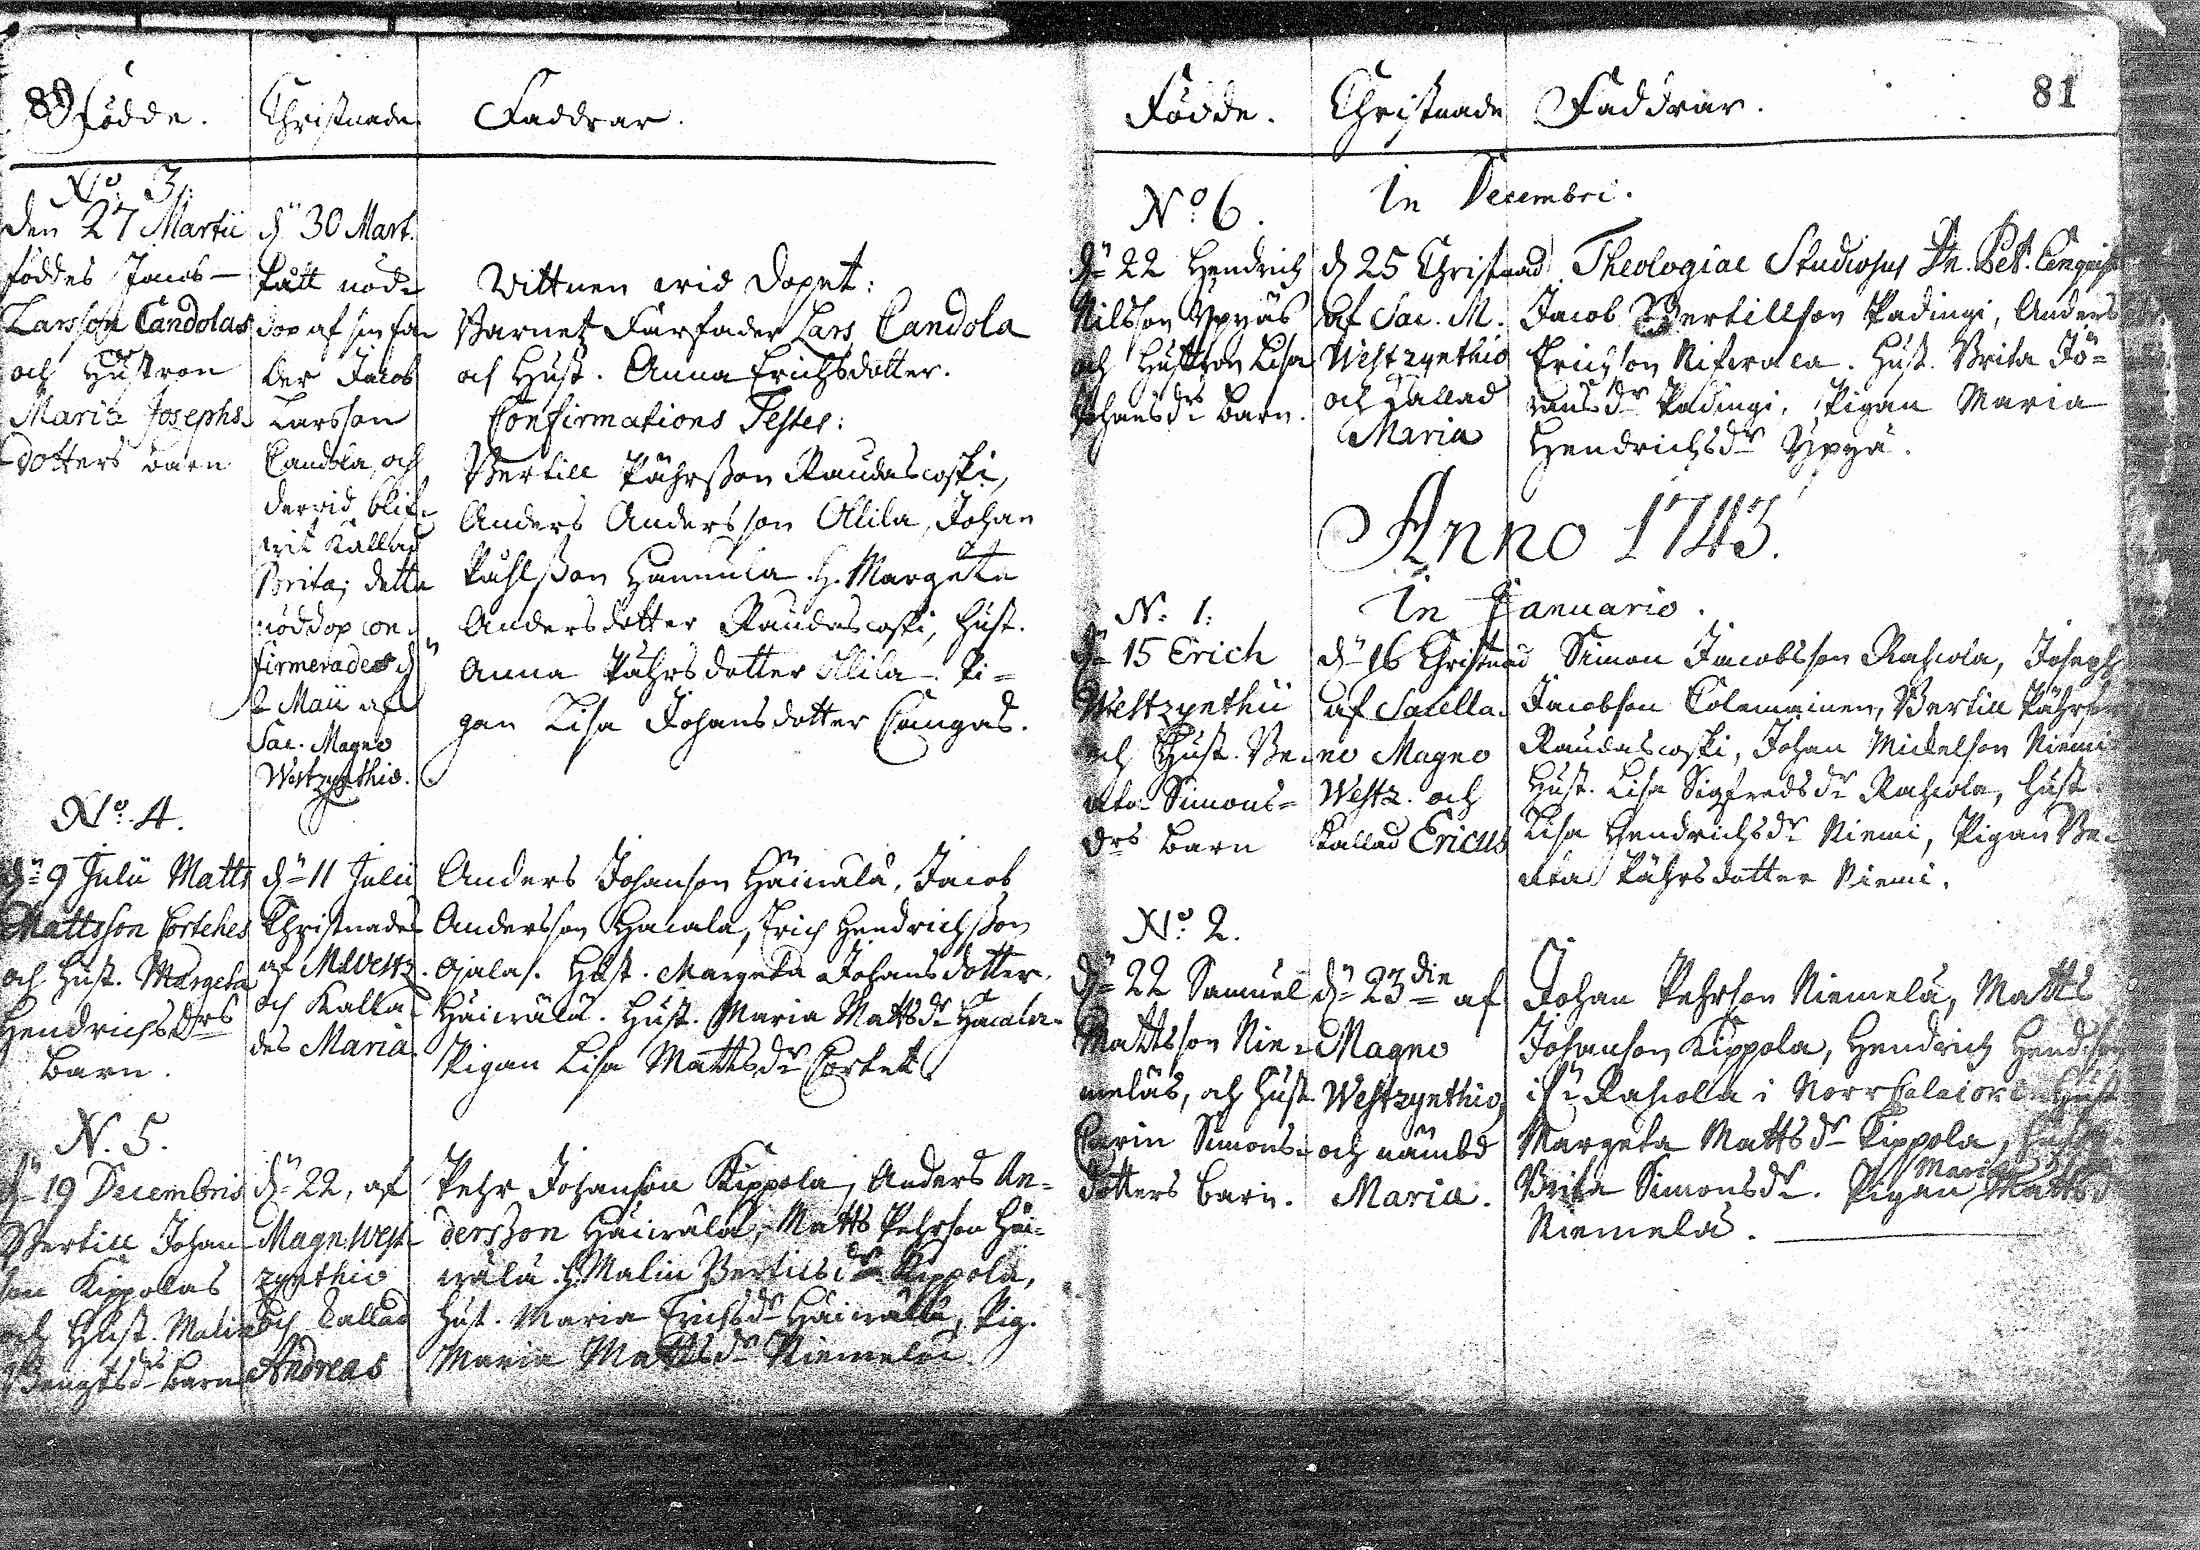 80 Födde. Christnade Faddrar.
No. 3.
Den 27 Martii
föddes Jacob
Larsson Candolas
och Hustron
Maria Josephs
dotters barn
dn 30 Mart.
fått nöd-
dop af sin fa-
der Jacob
Larsson
Candola, och
dervid blif-
vit kallad
Brita; detta
nöddop con-
firmerades dn
2 Maii af
Sac. Magno
Westzynthio.
Vittnen wid Dopet:
Barnets Farfader Lars Candola
och Hust. Anna Erichsdotter.
Confirmations Testes:
Bertill Påhrsson Raudascoski,
Anders Andersson Alila, Johan
Påhlsson Hannula. H. Margeta
Andersdotter Raudascoski, Hust.
Anna Påhrsdotter Alila. Pi=
gan Lisa Johansdotter Cangas.
No. 4.
dn 9 Julii Matts
Mattsson Cortehes
och Hust. Margeta
Hendrichsdrs
barn.
dn 11 Julii
Christnades
af M. Westz.
och kalla-
des Maria.
Anders Johanson Häivälä, Jacob
Andersson Hacala, Erich Hendrichsson
Ojala. Hust. Margeta Johansdotter
Häivälä. Hust. Maria Mattsdr Hacala.
Pigan Lisa Mattsdr Cortet.
N. 5.
dn 19 Decembris
Bertill Johan-
son Kippolas
och Hust. Malin
Bengtsdrs barn
dn 22, af
Magn. West-
zynthio
och kallad
Andreas
Pehr Johanson Kippola, Anders An=
dersson Häivälä, Matts Pehrson Häi-
välä. H. Malin Bertilsdr Kippola,
Hust. Maria Erichsdr Häivälä, Pig.
Maria Mattsdr Niemelä.
Födde. Christnade Faddrar. 81
In Decembri.
No 6.
dn 22 Hendrich
Nilsson Ypyäs
och Hustron Lisa
Johansdrs barn.
dn 25 Christnad
af Sac. M.
Westzynthio
och kallad
Maria
Theologiae Studiosus Dn. Pet.
Jacob Bertillson Padingi, Anders
Erichson Hust. Brita Jö=
ransdr Padingi, Pigan Maria
Hendrichsdr Ypyä.
Anno 1743.
In Januario.
N. 1.
dn 15 Erich
Westzynthii
och Hust. Be-
ata Simons=
drs barn
dn 16 Christnad
af Sacella-
no Magno
Westz. och
kallad Ericus
Simon Jacobsson Rahiola, Joseph
Jacobson Colemainen, Bertill Påhrson
Raudascoski, Johan Mickelson Niemi
Hust. Lisa Sigfredsdr Rahiola, Hust.
Lisa Hendrichsdr Niemi, Pigan Be-
ata Påhrsdotter Niemi.
No. 2.
dn 22 Samuel
Mattsson Nie-
meläs, och Hust.
Carin Simons-
dotters barn.
dn 23 die af
Magno
Westzynthio,
och nämbd
Maria.
Johan Pehrson Niemelä, Matts
Johanson Kippola, Hendrich
Rahiola i Hust
Margeta Mattsdr Kippola,
Brita Simonsdr. Pigan Maria Mattsdr
Niemelä.